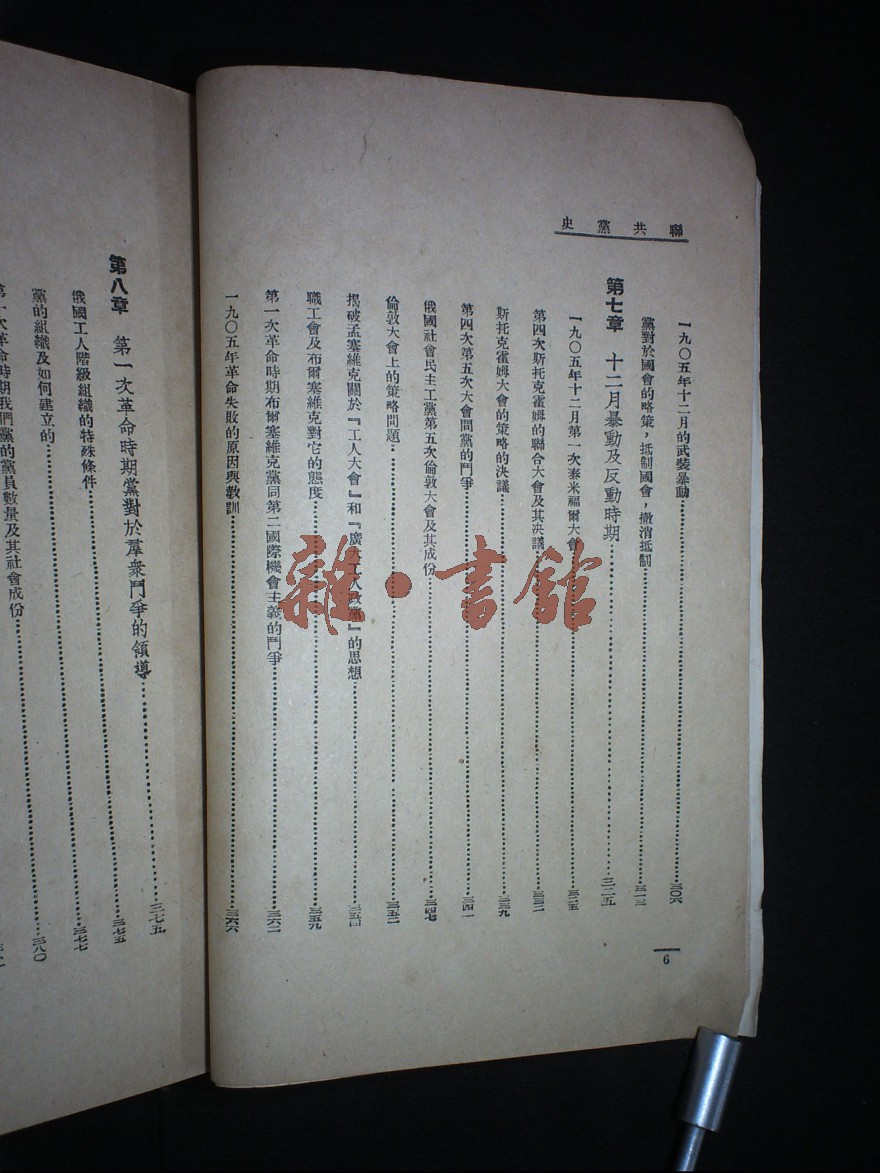 聯共黨史
一九〇五年十二月的武裝暴動……三〇六
黨對於國會的略策，抵制國會，撤消抵制……三一三
第七章 十二月暴動及反動時期……三二五
一九〇五年十二月第一次泰米福爾大會……三二五
第四次斯托克霍姆的聯合大會及其決議……三三二
斯托克霍姆大會的策略的決議……三三九
第四次第五次大會間黨的鬥爭……三四一
俄國社會民主工黨第五次倫敦大會及其成份……三四七
倫敦大會上的策略問題……三五二
揭破孟塞維克關於『工人大會』和『廣大工人政黨』的思想……三五四
職工會及布爾塞維克對它的態度……三五九
第一次革命時期布爾塞維克黨同第二國際機會主義的鬥爭……三六二
一九〇五年革命失敗的原因與教訓……三六六
6
第八章 第一次革命時期黨對於羣衆鬥爭的領導……三七五
俄國工人階級組織的特殊條件……三七五
黨的組織及如何建立的……三七七
第一次革命時期我們黨的黨員數量及其社會成份……三八〇
雜·書館